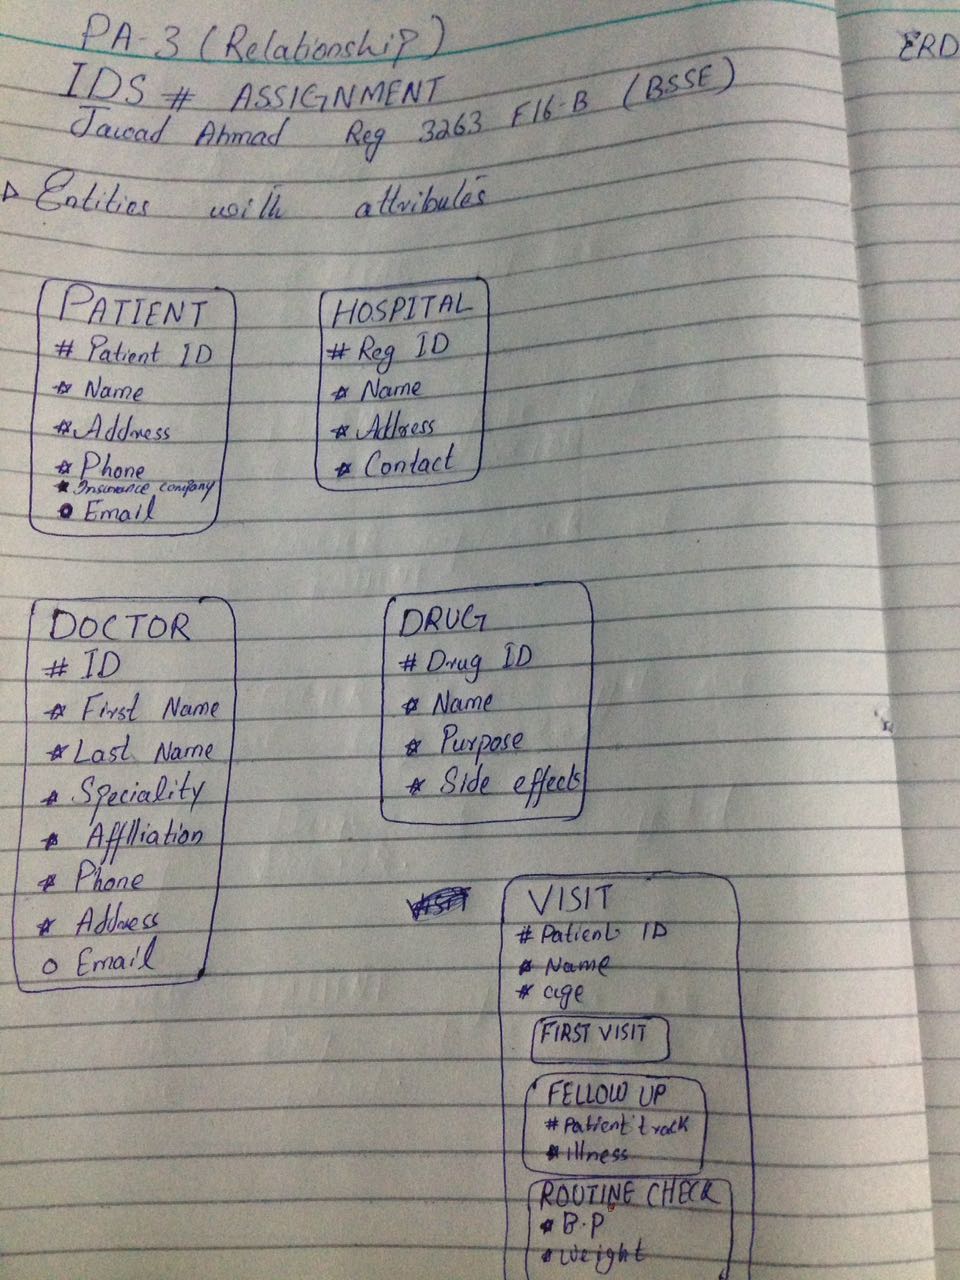 PA-3 (Relationship)
ERD
IDS # ASSIGNMENT
Jawad Ahmad Reg 3263 F16-B (BSSE)
Entities with attributes
PATIENT
# Patient ID
* Name
* Address
* Phone
* Insurance company
o Email
HOSPITAL
# Reg ID
* Name
* Address
* Contact
DOCTOR
# ID
* First Name
* Last Name
* Speciality
* Affiliation
* Phone
* Address
o Email
DRUG
# Drug ID
* Name
* Purpose
* Side effects
VISIT
# Patient ID
* Name
* age
FIRST VISIT
FELLOW UP
# Patient track
* illness
ROUTINE CHECK
* B.P
* weight